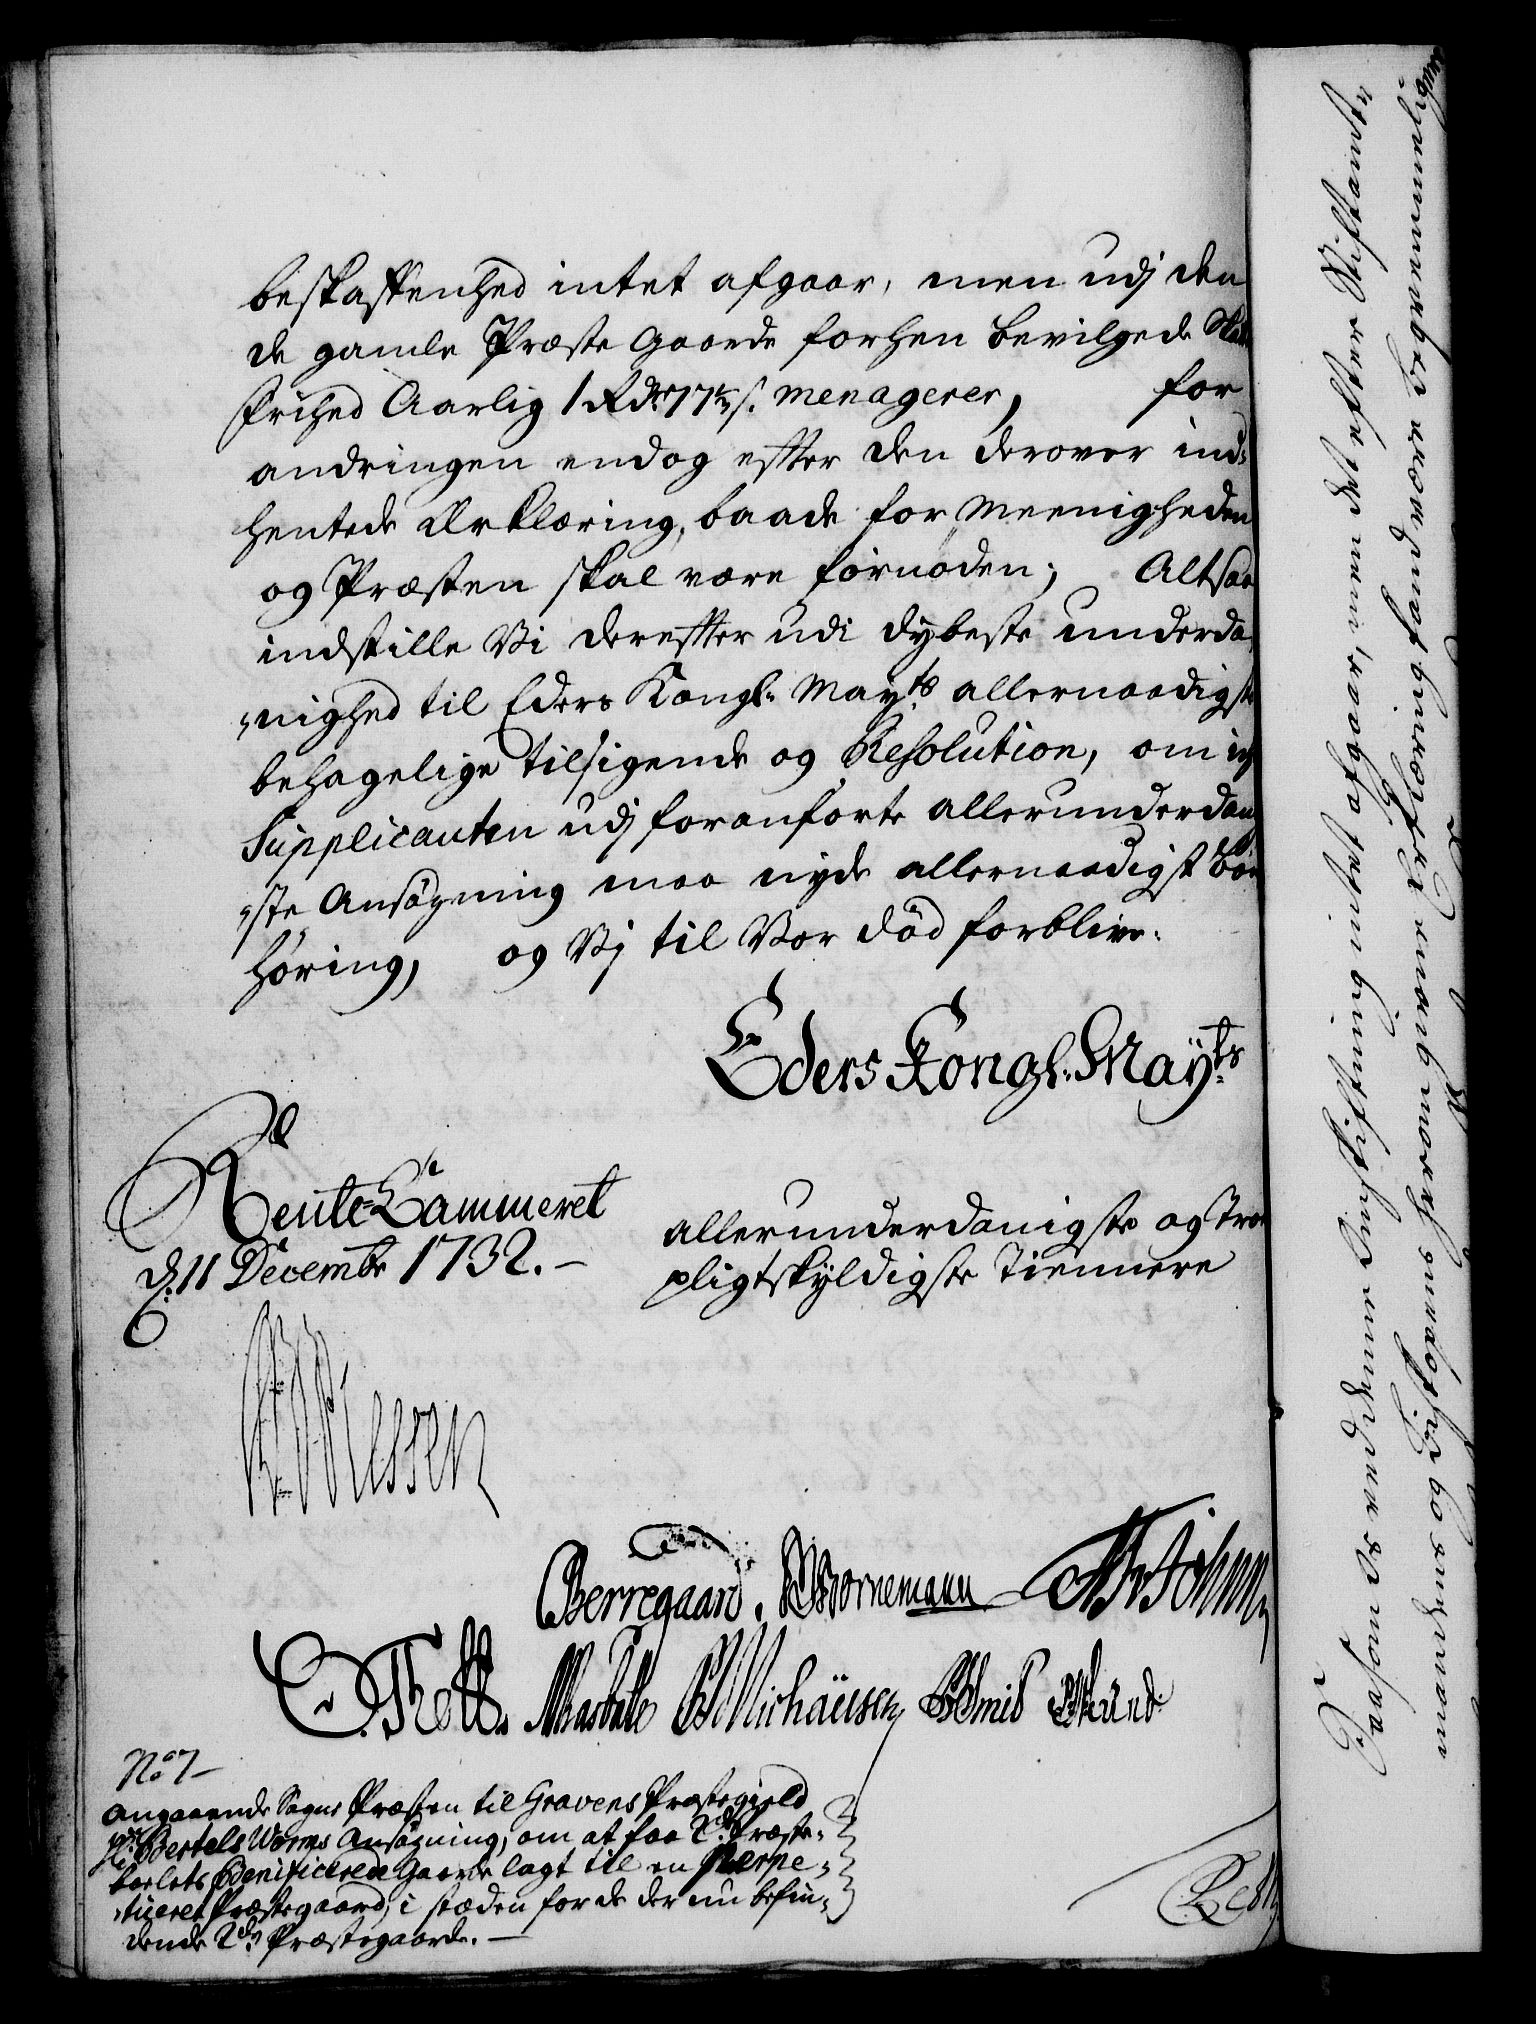 beskaffenhed intet afgaar, men udj den
de gamle Præste Gaarde forhen bevilgede
Frihed Aarlig 1 Rdr 17 s. menagerer, for
andringen endog efter den derover ind-
hentede Erklæring, baade for Meenigheden
og Præsten skal være fornøden; Altsaa
indstille Vi derefter udi dybeste underda
nighed til Eders Kongl. Mayts allernaadigste
behagelige tilsigende og Resolution, om
Supplicanten udj foranførte allerunderdan
ste Ansøgning maa nyde allernaadigst Bøn
høring, og Vj til Vor død forblive.
Eders Kongl. Mayts
Rente-Cammeret
d. 11 Decembr 1732. —
allerunderdanigste og Troe
pligtskyldigste Tiennere
Berregaard. Bornemann
No 7 —
Angaaende Sogne Præsten til Gravens Præstegield
Hr Bertel Worms Ansøgning, om at faae 2de Præste-
boelets Benificerede Gaarde lagt til en Perpe-
tueret Præstegaard, i stæden for de der nu befin-
dende 2de Præstegaarde. —
Saasom der ved denne Indstiftning intet afgaar, men det efter Stiftamt-
mandens og Biskopens herom givne Erklæring, kand være beqvemmelig